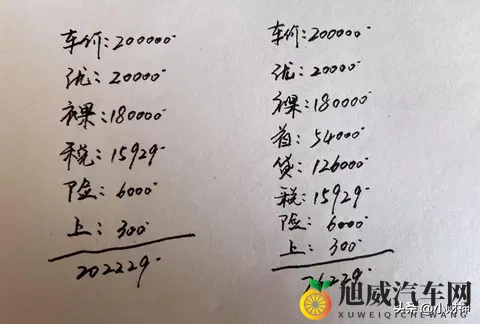 车价:200000
优:20000
裸:180000
税:15929
险:6000
上:300
202229
车价:200000
优:20000
裸:180000
首:54000
贷:126000
税:15929
险:6000
上:300
76229
头条@小财神
旭威汽车网
XUWEIQICHEWANG